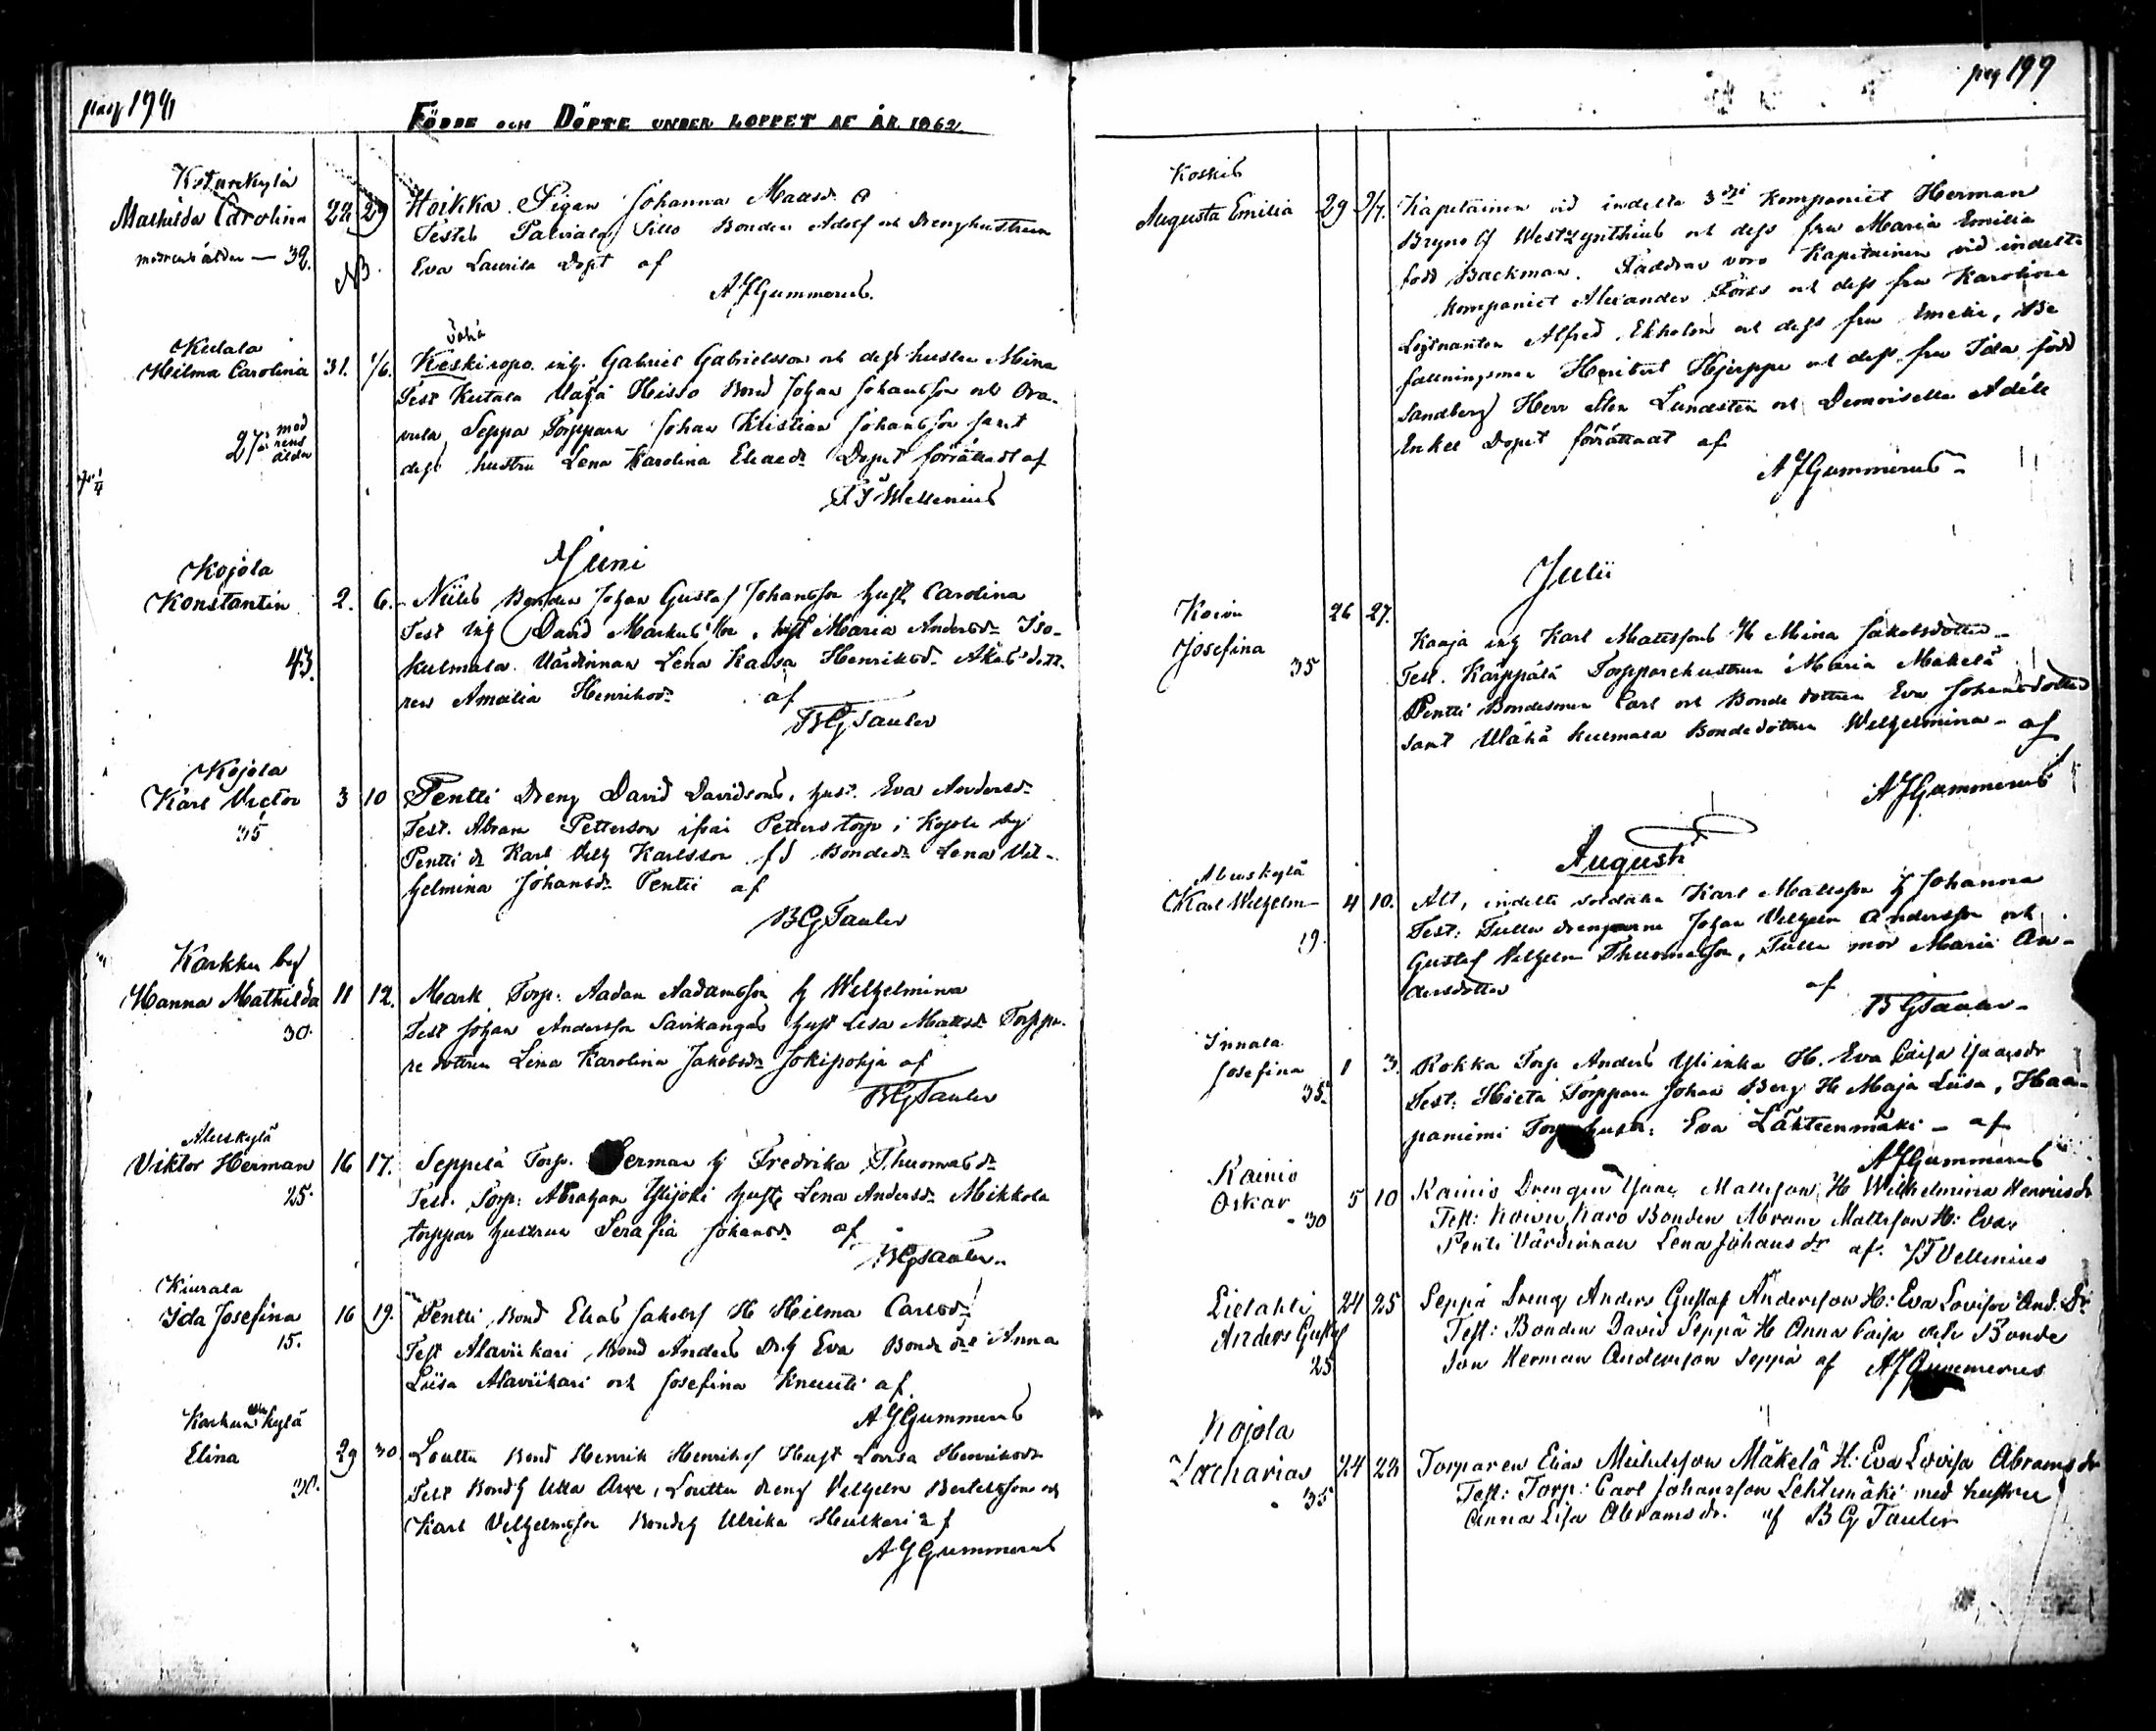 pag 198
FÖDDE OCH DÖPTE UNDER LOPPET AF ÅR 1862
Mathilda Carolina 22 29 Hoikka Pigan Johanna
modrens ålder — 32. Bonden Adolf och Drenghustrun
NB. Eva Laurila Döpt af
A J Gummerus.
Kutala Vähä
Hilma Carolina 31. 1/6. Keskiropo inh. Gabriel Gabrielsson och dess hustru Mina
Test Kutala Bond Johan Johansson och
27 modrens ålder Seppä Torpparn Johan Kristian Johansson samt
dess hustru Lena Karolina Döpet förrättadt af
Wellenius
Juni
Kojola
Konstantin 2. 6. Niiles Bonden Johan Gustaf Johansson hust Carolina
Test inh David Markusson, hust Maria Andersdr Iso-
43. kulmala Värdinnan Lena Kaisa Henriksdr
Amalia Henriksdr af
B G Tauler
Kojola
Karl Victor 3 10 Pentti Dreng David Davidsons, hust. Eva Andersdr
35 Test. Abram Petterson ifrån Petterstorp i Kojola by
Pentti dr Karl Vilh Karlsson Bonded. Lena Vil-
helmina Johansdr Pentti af
B G Tauler
Karkku by
Hanna Mathilda 11 12. Mark Torp: Aadam Aadamsson h Wilhelmina
30. Test Johan Andersson Savikangas hust Lisa Mattsdr Torppa-
re dottren Lena Karolina Jakobsdr Jokipohja af
B G Tauler
Aluskylä
Viktor Herman 16 17. Seppälä Torp. Herman h Fredrika Thomasdr
25. Test. Torp: Abraham Ylijoki hust Lena Andersdr Mikkola
torppar hustrun Serafia Johansdr af
B G Tauler
Kiurala
Ida Josefina 16 19. Pentti Bond Elias Jakobs H Hilma Carlsdr
15. Test Alaviikari Bond Anders h Eva Anna
Liisa Alaviikari och Josefina Knuuti af
A J Gummerus
Elina 29 30. Louttu Bond Henrik Hust Lovisa Henriksdr
Test Bondh Ulla Louttu dreng Vilhelm och
Karl Vilhelmsson Bondeh Ulrika af
A J Gummerus
pag 199
Koskis
Augusta Emilia 29 9/7. Kapitainen vid indelta 3dje Kompaniet Herman
Brynolf Westzynthius och dess fru Maria Emilia
född Backman. Faddrar voro Kapitainen vid indelta
Kompaniet Alexander och dess fru Karolina
Löjtnanten Alfred Ekholm och dess fru Be
fallningsman Heribert Hjerppe och dess fru Ida född
Sandberg Herr Lundsten och Demoiselle Adéle
Enkel Döpet förrättadt af
A J Gummerus
Julii
Koivu 26 27. Kaaja inh Karl Mattssons H Mina Jakobsdotter
Josefina Test. Kärppälä Torpparehustrun Maria Mäkelä
35 Pentti Bondesonen Carl och Bonde dottren Eva Johansdotter
samt Vähä kulmala Bondedottren Wilhelmina af
A J Gummerus
Augusti
Aluskylä
Karl Wilhelm 4 10. Alt, indelta soldaten Karl Mattsson h Johanna
19. Test: drengarne Johan Vilhelm Andersson och
Gustaf Vilhelm Thomasson, mor Maria An-
dersdotter af
B G Tauler
Innala
Josefina 1 3. Kokka Torp Anders H. Eva Caisa
35. Test: Hieta Torpparn Johan Berg H Maja Liisa, Haa-
paniemi Torp hustr: Eva Lähteenmäki af
A J Gummerus
Rainio
Oskar 5 10 Rainio Drengen Mattsson H Wilhelmina Henriksdr
30 Test: Koivu Karo Bonden Abram Mattsson H: Eva,
Penti Värdinnan Lena Johansdr af Vellenius
Lielahti 24 25 Seppä Dreng Anders Gustaf Andersson H: Eva Lovisa And: Dr
Anders Gustaf Test: Bonden David Seppä H Anna Caisa och Bonde
25 Son Herman Andersson Seppä af A J Gummerus
Kojola
Zacharias 24 28 Torparen Elias Michelsson Mäkelä H: Eva Lovisa Abramsdr
35 Test: Torp: Carl Johansson Lehtimäki med hustru
Anna Lisa Abramsdr. af B G Tauler